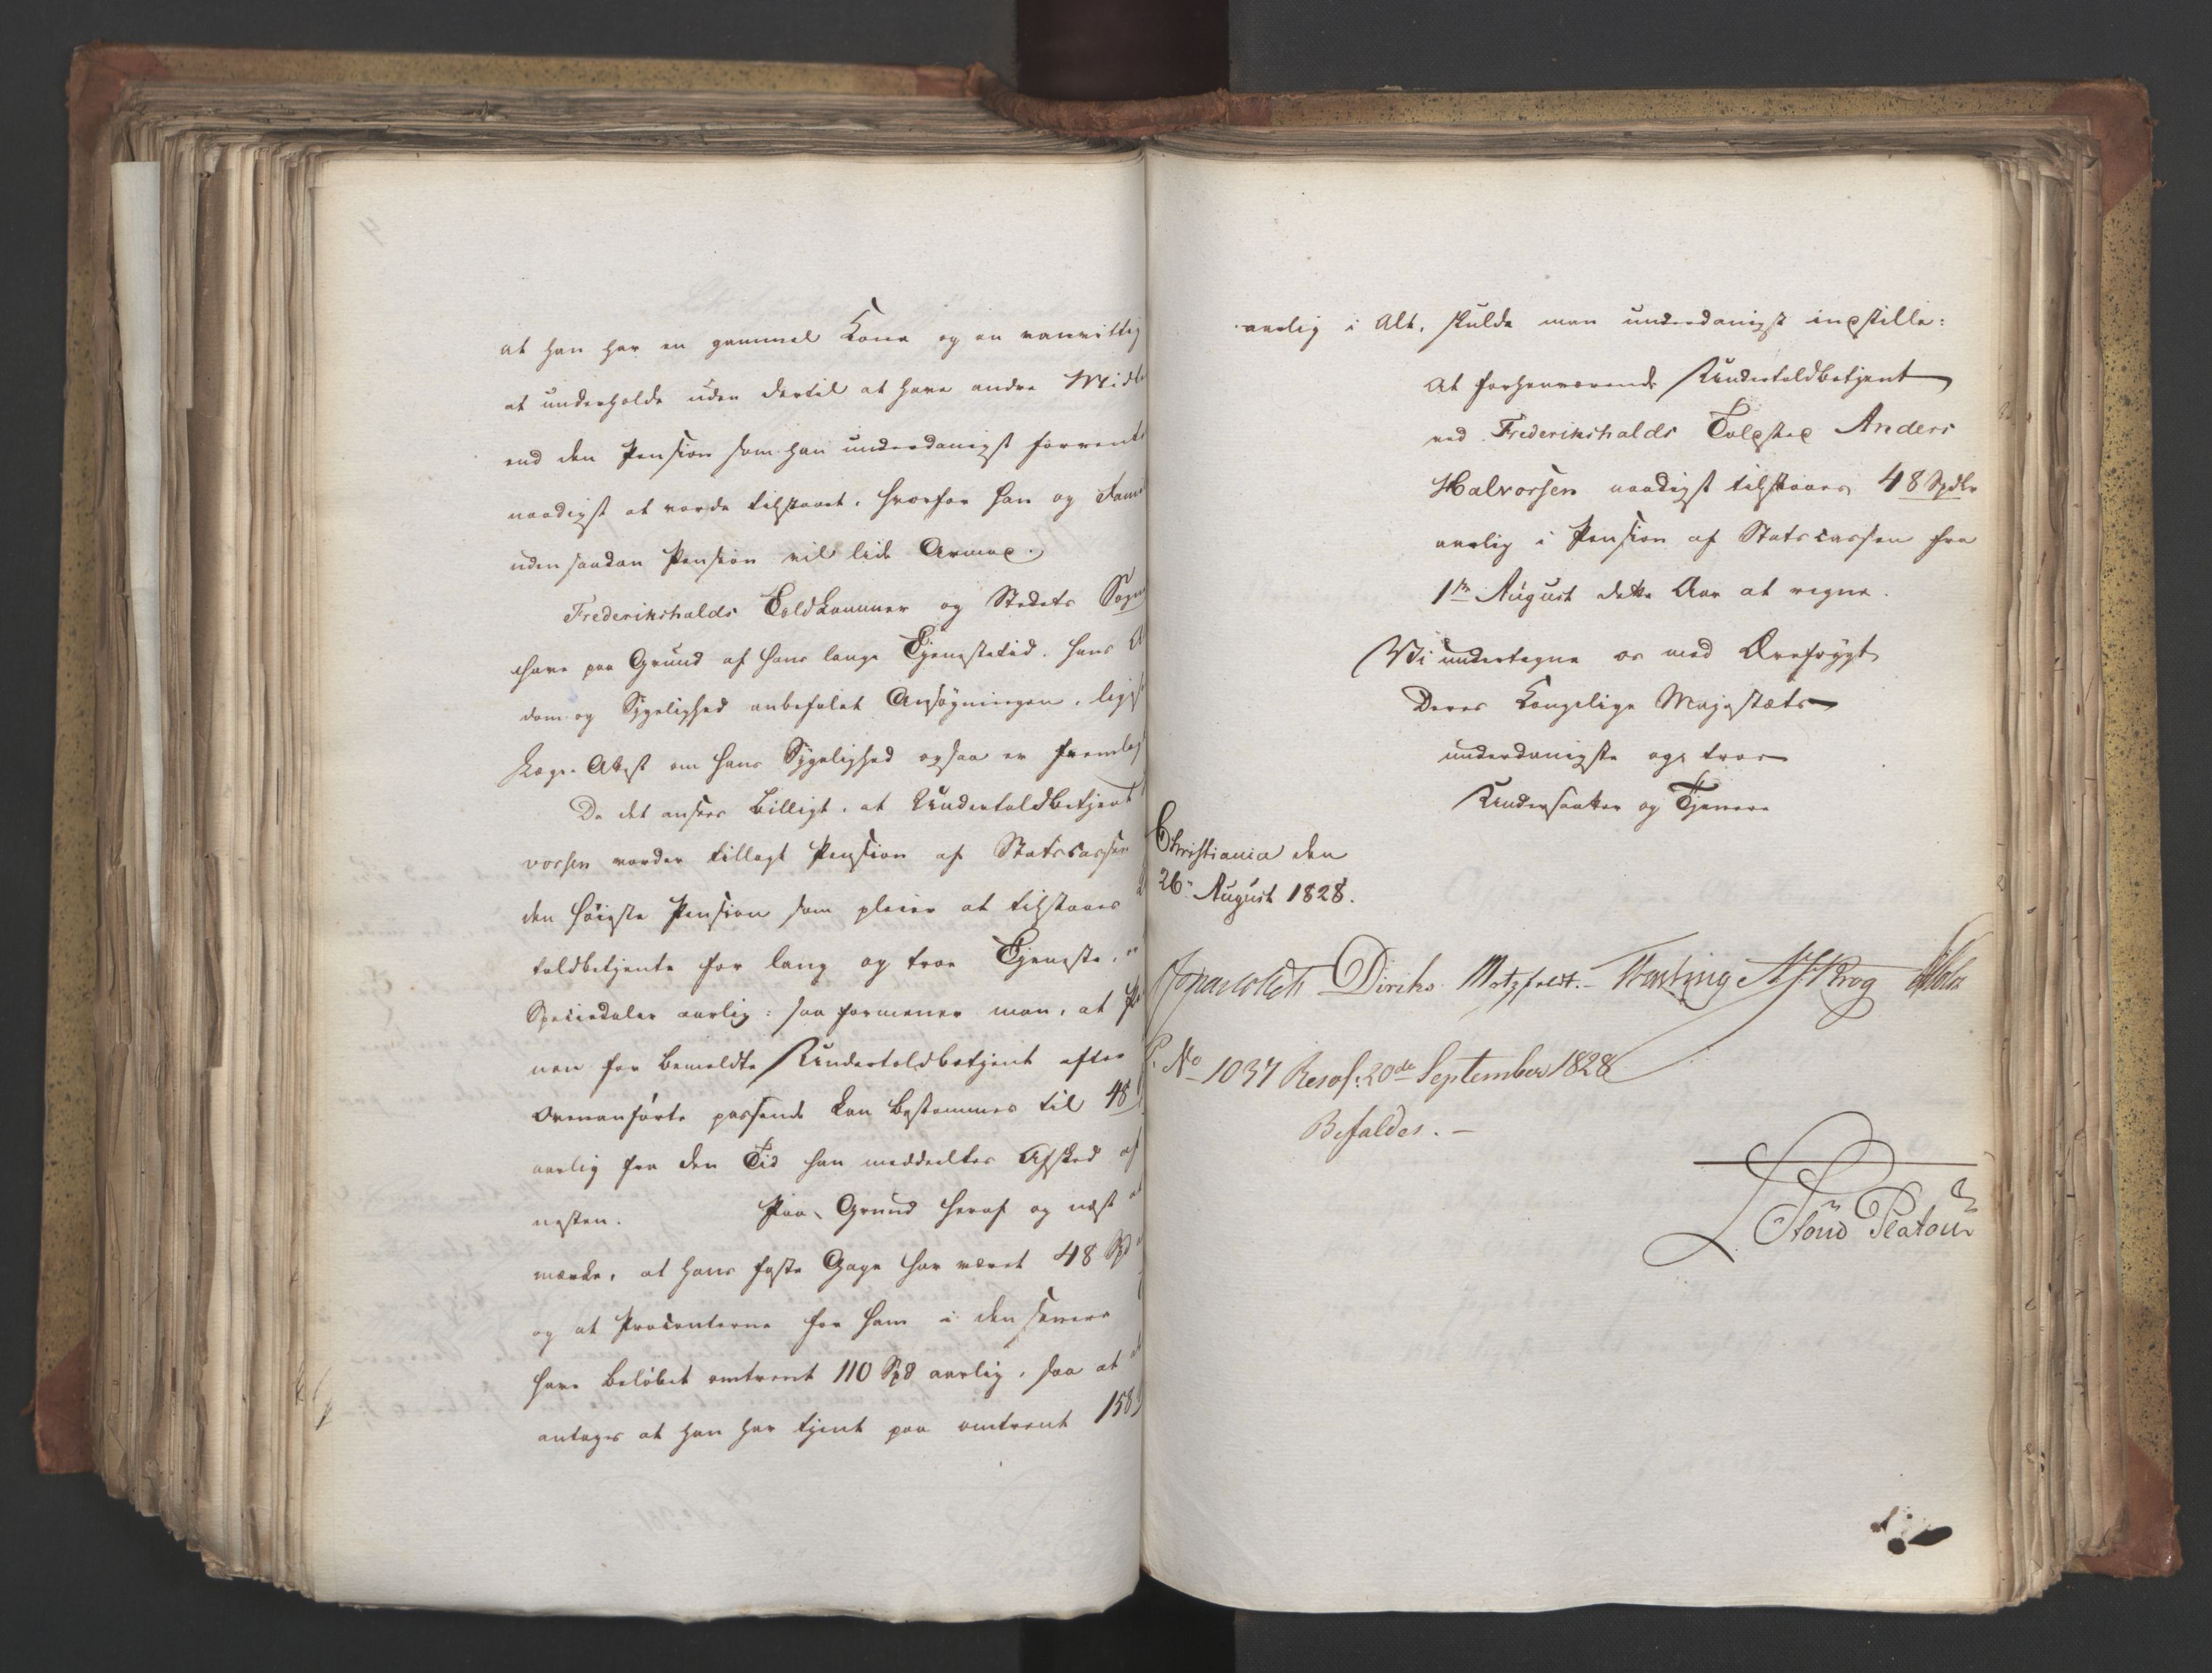 at han har en gammel Kone og en vanvittig
at underholde uden dertil at have andre Midl
end den Pension som han underdanigst forvent
naadigst at vorde tilstaaet, hvorfor han og Fam
uden saadan Pension vil lide Armod.
Frederikshalds Toldkammer og Stedets Sogne
have paa Grund af hans lange Tjenestetid, hans Al
dom og Sygelighed anbefalet Ansøgningen, lige
Læge-Attest om hans Sygelighed ogsaa er fremlagt
Da det ansees billigt, at Undertoldbetjent
vorsen vorder tillagt Pension af Statscassen
den høieste Pension som pleier at tilstaaes
toldbetjente for lang og troe Tjeneste, er
Speciedaler aarlig: saa formener man, at Pe
nen for bemeldte Undertoldbetjent efter
Ovenanførte passende kan bestemmes til 48
aarlig fra den Tid han meddeeltes Afsked af
nesten. Paa Grund heraf og næst at
mærke, at hans faste Gage har været 48 Spd
og at Procenterne for ham i den senere
have beløbet omtrent 110 Spd aarlig, saa at
antages at han har tjent paa omtrent 158
aarlig i Alt, skulde man underdanigst indstille:
At forhenværende Undertoldbetjent
ved Frederikshalds Toldsted Anders
Halvorsen naadigst tilstaaes 48 Spdlr
aarlig i Pension af Statscassen fra
1ste August dette Aar at regne.
Vi undertegne os med Ærefrygt
Deres Kongelige Majestæts
underdanigste og troe
Undersaatter og Tjenere
Christiania den
26. August 1828.
Collett Diriks Motzfeldt. Fasting Krog Holst
No 1037 Resol: 20de September 1828
Befales. —
Stoud Platou